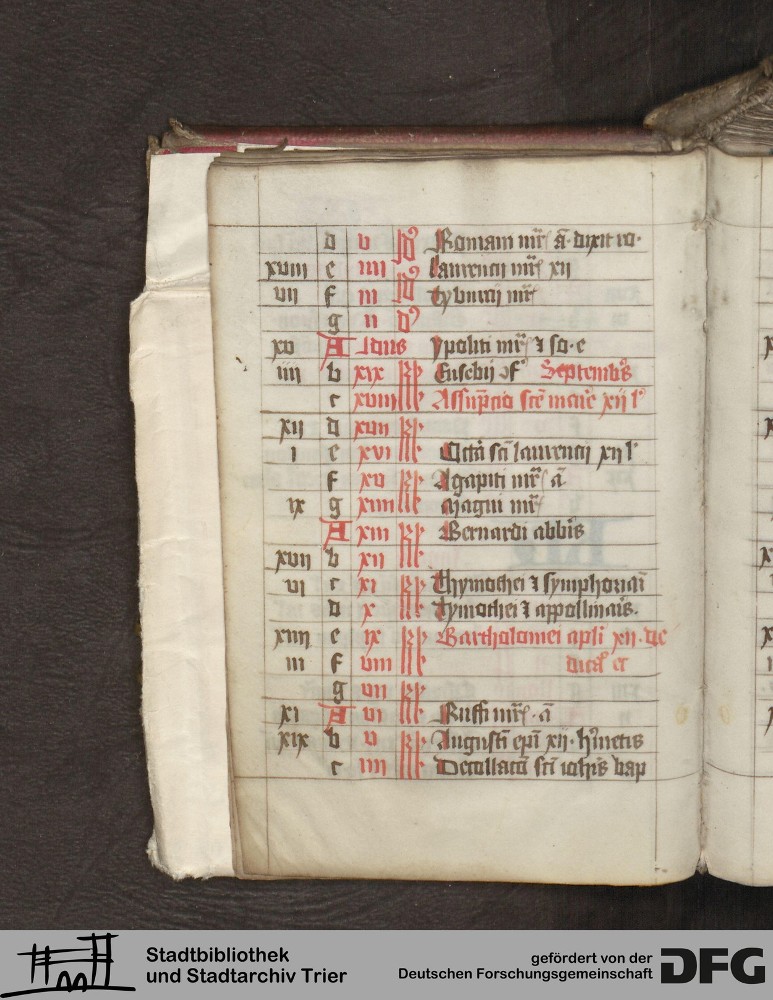 d v Idꝰ Romani mr̄ ā dixit ro.
xviii e iiii laurencij mr̄ xii
vii f iii Idꝰ tyburcij mr̄
g ii dꝰ
xv A Idus ypoliti mr̄ ⁊ so. e
iiii b xix kl Eusebij ɔf Septembrꝭ
c xviii kl Assūptio scē marie xij lꝰ
xii d xvii kl
i e xvi kl Octā scī laurencij xij lꝰ
f xv kl Agapiti mr̄ ā
ix g xiiii kl Magni mr̄
A xiii kl Bernardi abbīs
xvii b xii kl
vi c xi kl thymothei ⁊ symphoriāi
d x kl tymothei ⁊ appollinarꝭ.
xiiii e ix kl Bartholomei apli xij. de
iii f viii kl
g vii kl
xi A vi kl Ruffi mr̄. ā
xix b v kl Augusti epī xij. hermetis
c iiii kl Decollatō scī iohīs bap
Stadtbibliothek
und Stadtarchiv Trier
gefördert von der
Deutschen Forschungsgemeinschaft
DFG